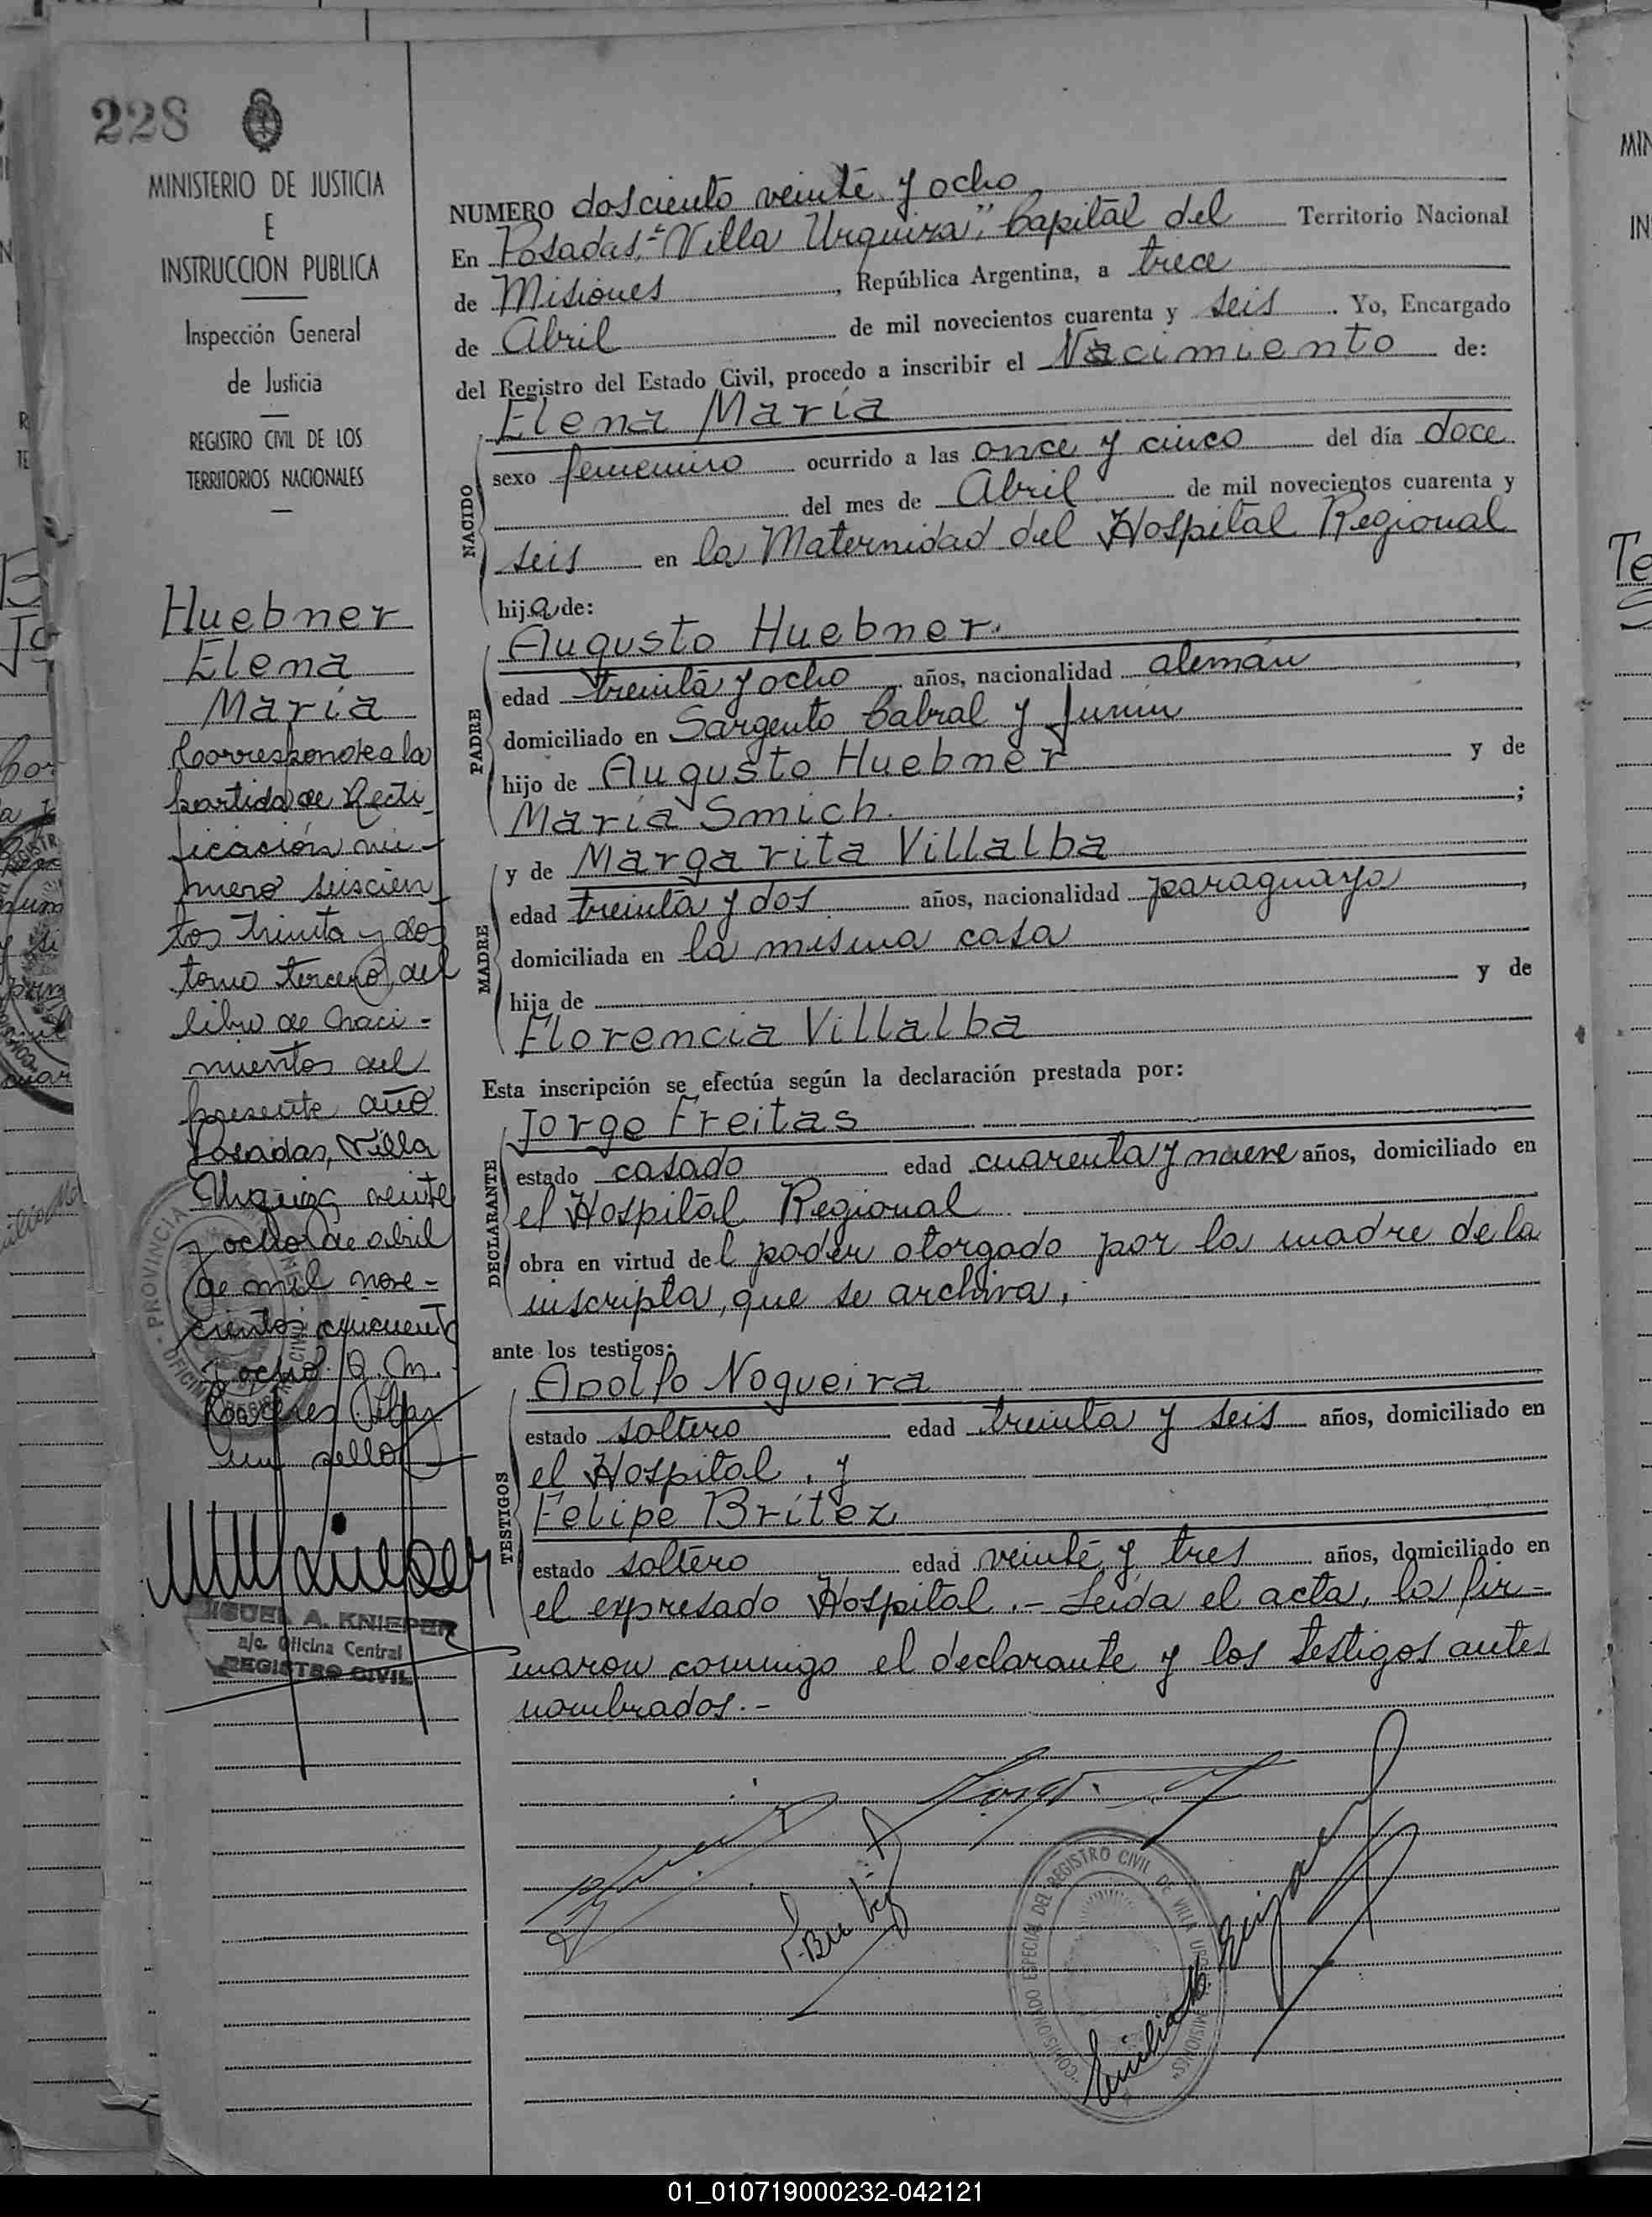 228
MINISTERIO DE JUSTICIA
E
INSTRUCCION PUBLICA
Inspección General
de Justicia
REGISTRO CIVIL DE LOS
TERRITORIOS NACIONALES
Huebner
Elena
María
Corresponde a la
partida de Recti
ficación nú-
mero seiscien
tos treinta y dos
tomo tercero del
libro de Naci-
mientos del
presente año
Posadas, Villa
Urquiza veinte
y ocho de abril
de mil nove-
cientos cincuenta
y ocho
un sello
MIGUEL A. KNIEPER
a/c. Oficina Central
REGISTRO CIVIL
NUMERO dosciento veinte y ocho
En Posadas, "Villa Urquiza", Capital del Territorio Nacional
de Misiones, República Argentina, a trece
de Abril de mil novecientos cuarenta y seis. Yo, Encargado
del Registro del Estado Civil, procedo a inscribir el Nacimiento de:
NACIDO
Elena María
sexo femenino ocurrido a las once y cinco del día doce
del mes de Abril de mil novecientos cuarenta y
seis en la Maternidad del Hospital Regional
hija de:
PADRE
Augusto Huebner.
edad treinta y ocho años, nacionalidad alemán,
domiciliado en Sargento Cabral y Junin
hijo de Augusto Huebner y de
María Smich.;
MADRE
y de Margarita Villalba
edad treinta y dos años, nacionalidad paraguaya,
domiciliada en la misma casa
hija de y de
Florencia Villalba
Esta inscripción se efectúa según la declaración prestada por:
DECLARANTE
Jorge Freitas
estado casado edad cuarenta y nueve años, domiciliado en
el Hospital Regional
obra en virtud del poder otorgado por la madre de la
inscripta, que se archiva,
ante los testigos:
TESTIGOS
Adolfo Nogueira
estado soltero edad treinta y seis años, domiciliado en
el Hospital, y
Felipe Brítez
estado soltero edad veinte y tres años, domiciliado en
el expresado Hospital.- Leida el acta, la fir-
maron conmigo el declarante y los testigos antes
nombrados.-
COMISIONADO ESPECIAL DEL REGISTRO CIVIL DE VILLA URQUIZA MISIONES
01_010719000232-042121